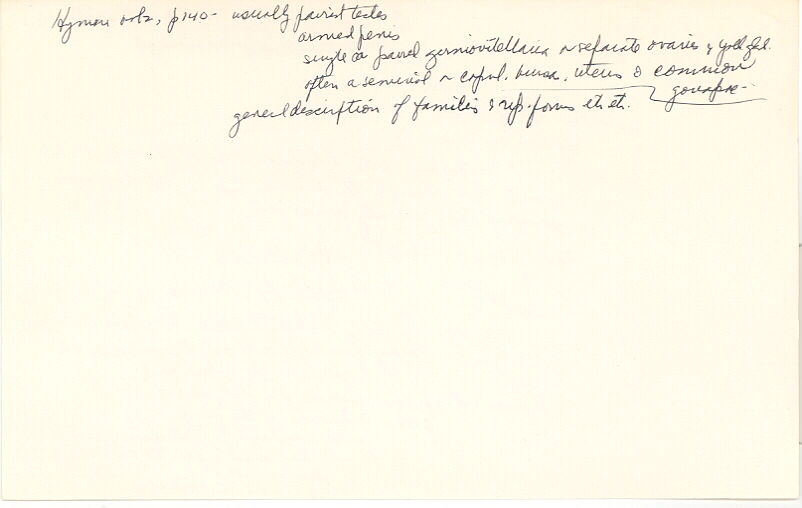 Hyman vol 2, p 140- usually paired testes
armed penis
single or paired germovitellaria or separate ovaries & yolk gld.
often a seminal or copul. bursa. uterus & common
gonopore-
general description of families & rep. forms etc etc.